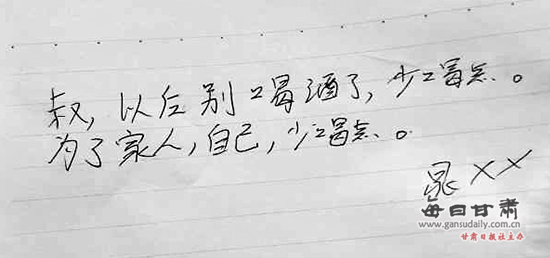 叔，以后别喝酒了，少喝点。
为了家人，自己，少喝点。
晁××
每日甘肃
www.gansudaily.com.cn
甘肃日报社主办